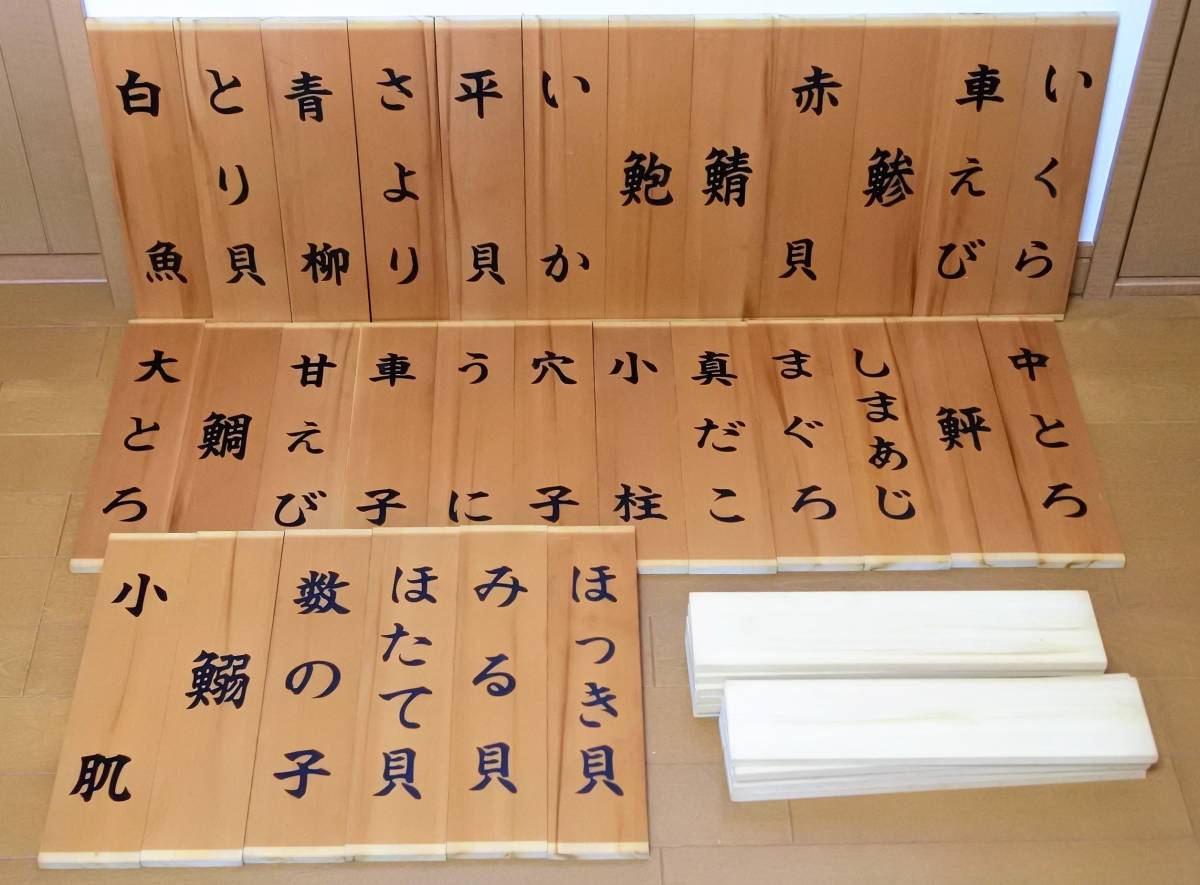 いくら
車えび
鯵
赤貝
鯖
鮑
いか
平貝
さより
青柳
とり貝
白魚
中とろ
鮃
しまあじ
まぐろ
真だこ
小柱
穴子
うに
車子
甘えび
鯛
大とろ
ほっき貝
みる貝
ほたて貝
数の子
鰯
小肌